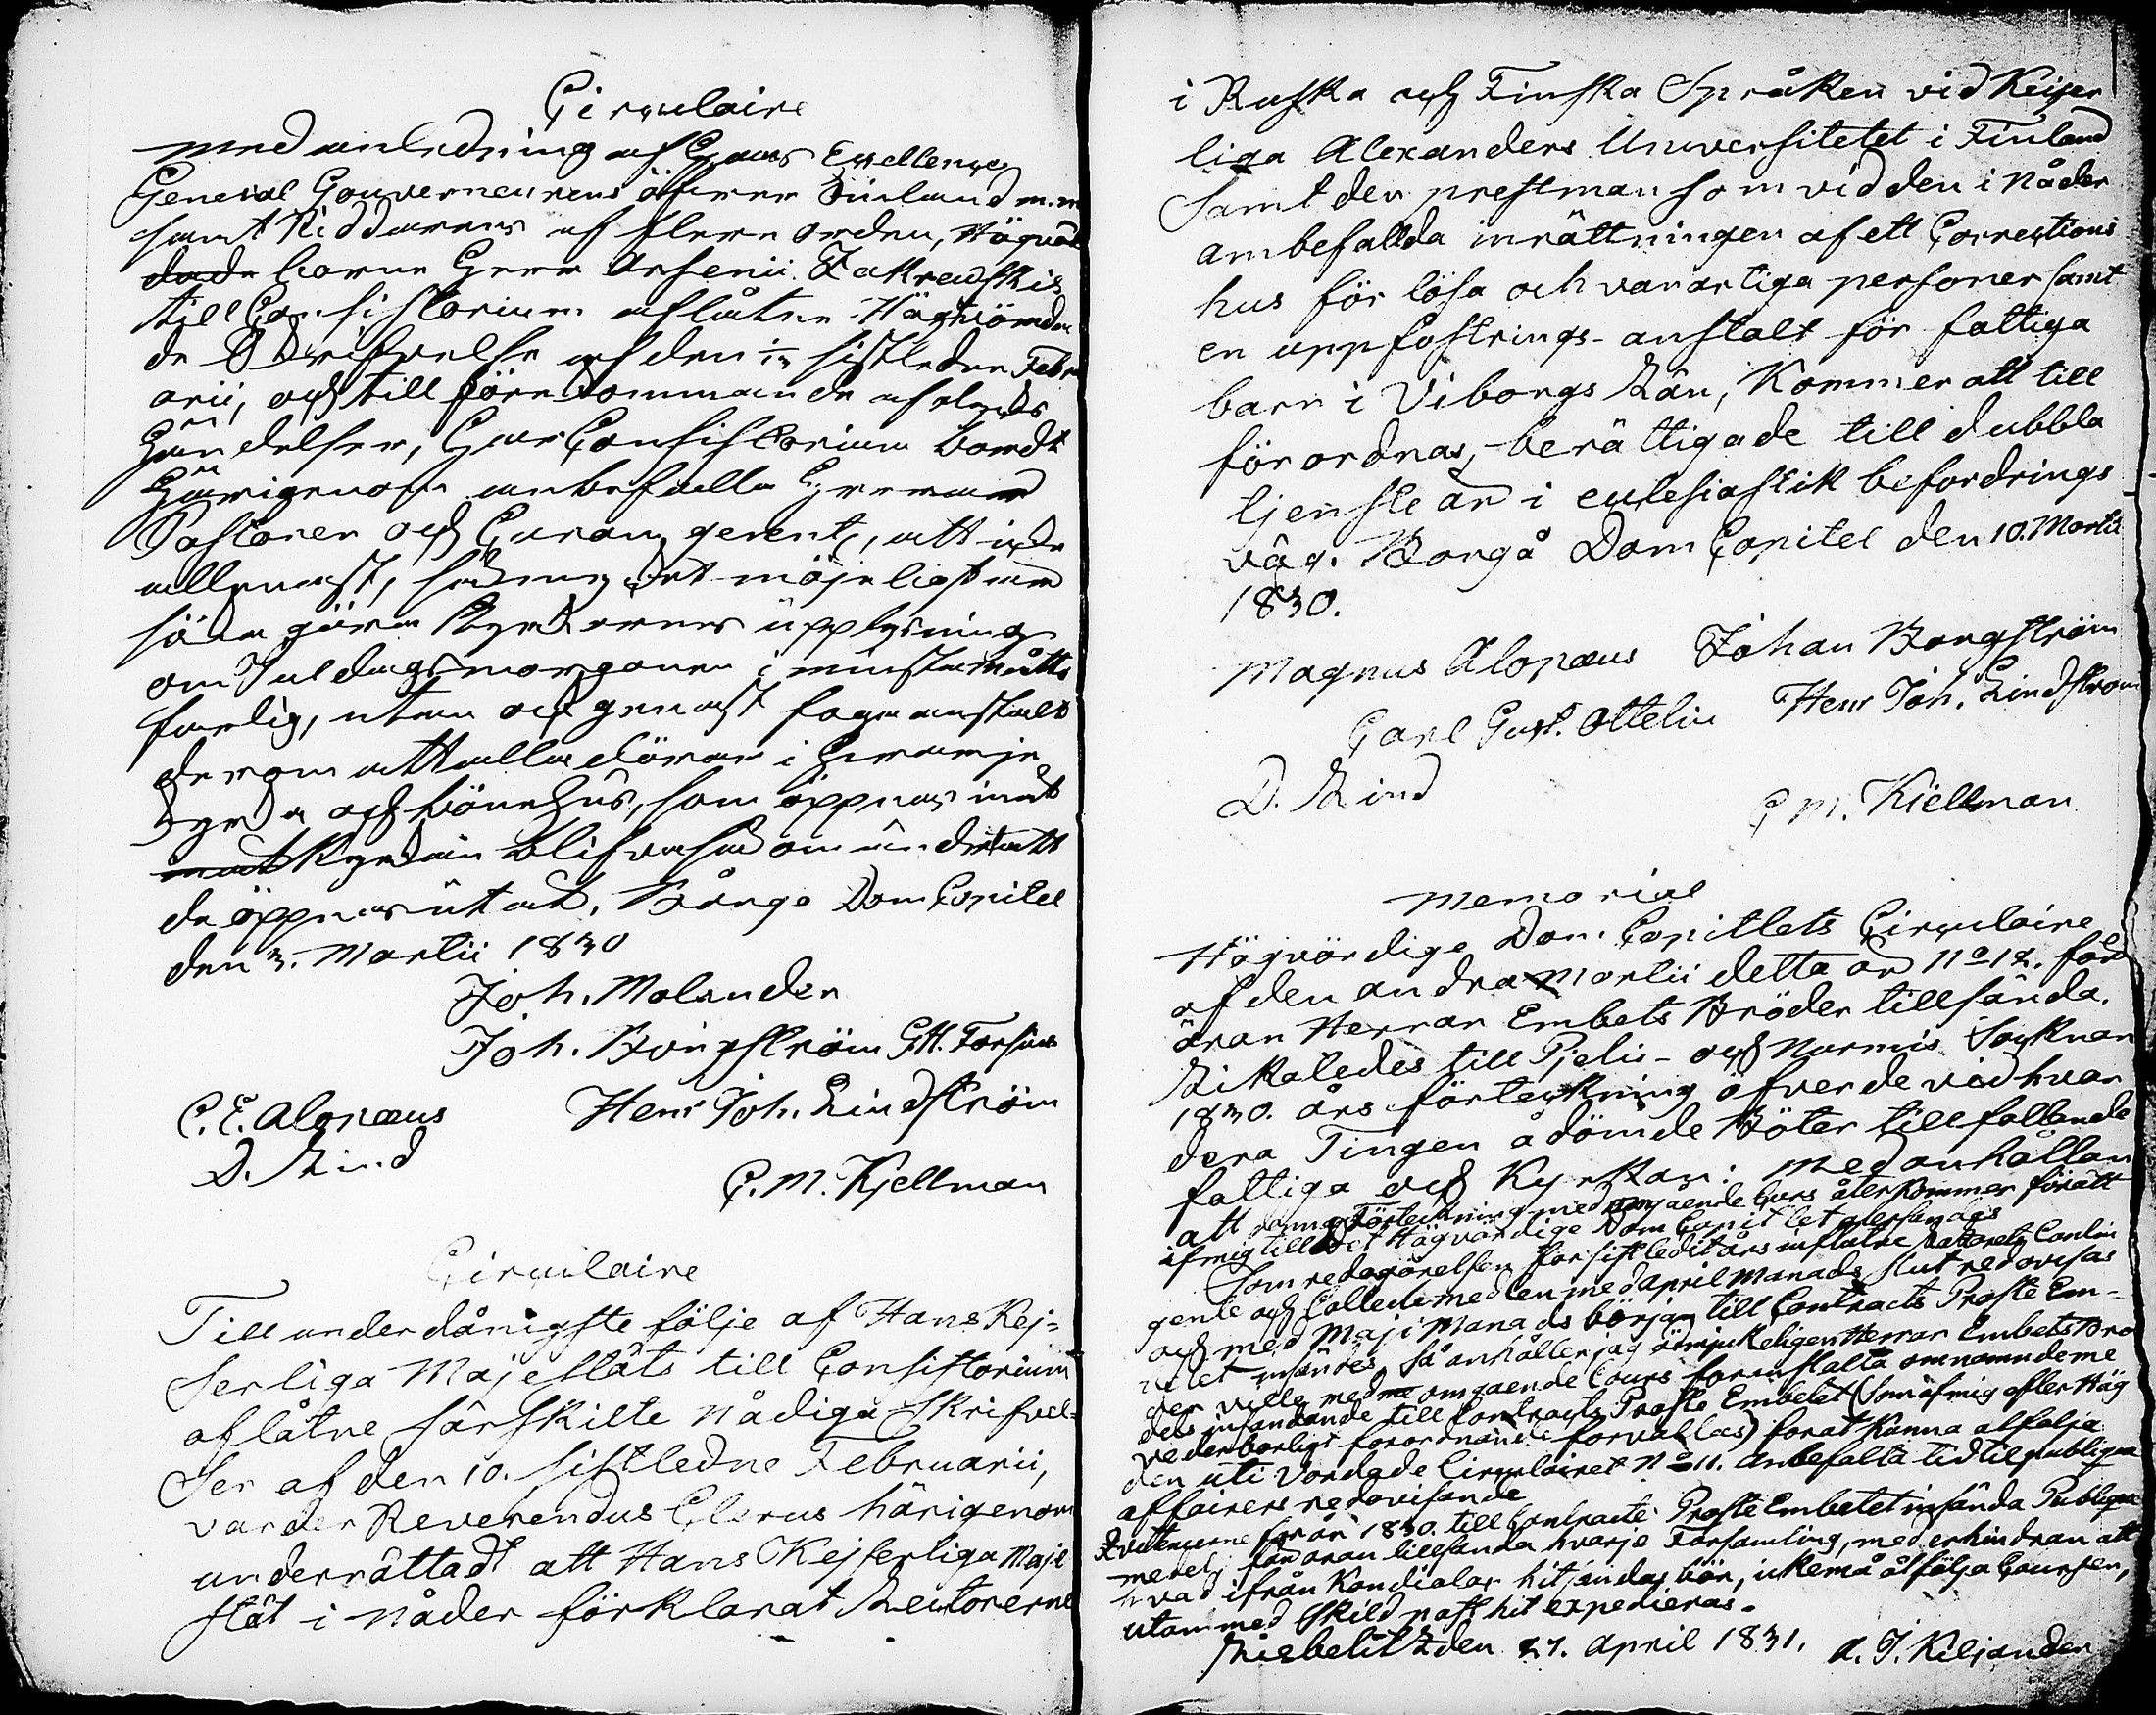 Circulaire
med anledning af Hans Excellence
General Gouverneurens öfver Finland m. m
samt Riddarens af flere orden, Högväl
borne Herr Arsenii Zakrewskis
till Consistorium aflåtne Högtvörda
de Skrifvelse af den sistledne Febru
arii, och till förekommande af
händelser, har Consistorium bordt
härigenom anbefalla Herrar
Pastorer och Curam gerent., att icke
allenast, det möjeligt
göra Kyrkornes upplysning
om Juldagsmorgonen i minsta måtto
farlig, utan ock genast foga anstalt
derom att alla dörrar i hvarje
Kyrka och bönehus, som öppnas inåt
Kyrkan blifva så om ändrat att
de öppnas utåt. Borgo Dom Capitel
den 3. Martii 1830
Joh. Molander
Joh. Borgström G. H. Forsius
C. E. Alopæus Henr Joh. Lindström
D. Lind
C. M. Kjellman
Circulaire
Till underdånigste följe af Hans Kej-
serliga Majestäts till Consistorium
aflåtne särskilte Nådiga Skrifvel-
ser af den 10. sistledne Februarii,
varder Reverendus Clerus härigenom
underrättadt att Hans Kejserliga Maje
stät i Nåder förklarat Rectorerne
i Ryska och Finska Språken vid Keijser
liga Alexanders Universitetet i Finland
Samt den prestman som vid den i nåder
ambefallda inrättningen af ett Corrections
hus för lösa och vanartiga personer samt
en uppfostrings-anstalt för fattiga
barn i Viborgs Län, Kommer att till
förordnas, berättigade till dubbla
tjenste år i eclesiastik befordrings
väg. Borgå Dom Capitel den 10. Martii
1830.
Magnus Alopæus Johan Borgström
Carl Gust. Ottelin Henr Joh. Lindstrom
D. Lind
C M. Kiellman
Memorial
Högvördige Dom Capitlets Circulaire
af den andra Martii detta år No 12. får
äran Herrar Embets Bröder tillsända.
Likaledes till Pjelis- och Nurmis Socknar
1830. års förteckning öfver de vid hvar
dera Tingen ådömde Böter tillfallande
fattiga och Kyrkan: Med anhållan
att denna Förteckning med omgående Curs återkommer föratt
af mig till Det Högvördige Dom Capitlet
Som redogörelsen för sistledit års influtne Contin
gente och Collectmedlen med April Manads slut redovisas
och med Maji Manads början till Contracts Proste Em-
betet insändes, så anhåller jag ödmjukeligen Herrar Embets Brö
der ville med omgaende Cours foranstalta omnamnde me
dels insandande till Contracts Proste Embetet (Som af mig efter Hög
vederborligt forordnande forvaltas) forat Kunna atfolja
den uti Vordade Circulairet No 11. anbefalta tid til publique
affairers redovisande
Kvittencerne for år 1830. till Contracts Proste Embetet insända Publique
medel, får äran tillsanda hvarje Forsamling, med erhindran att
hvad ifrån Kondialar hit sändas bör, icke må åtfölja Coursen,
utan med Skild post hit expedieras.
Libelitz den 27. April 1831. A. J. Kiljander